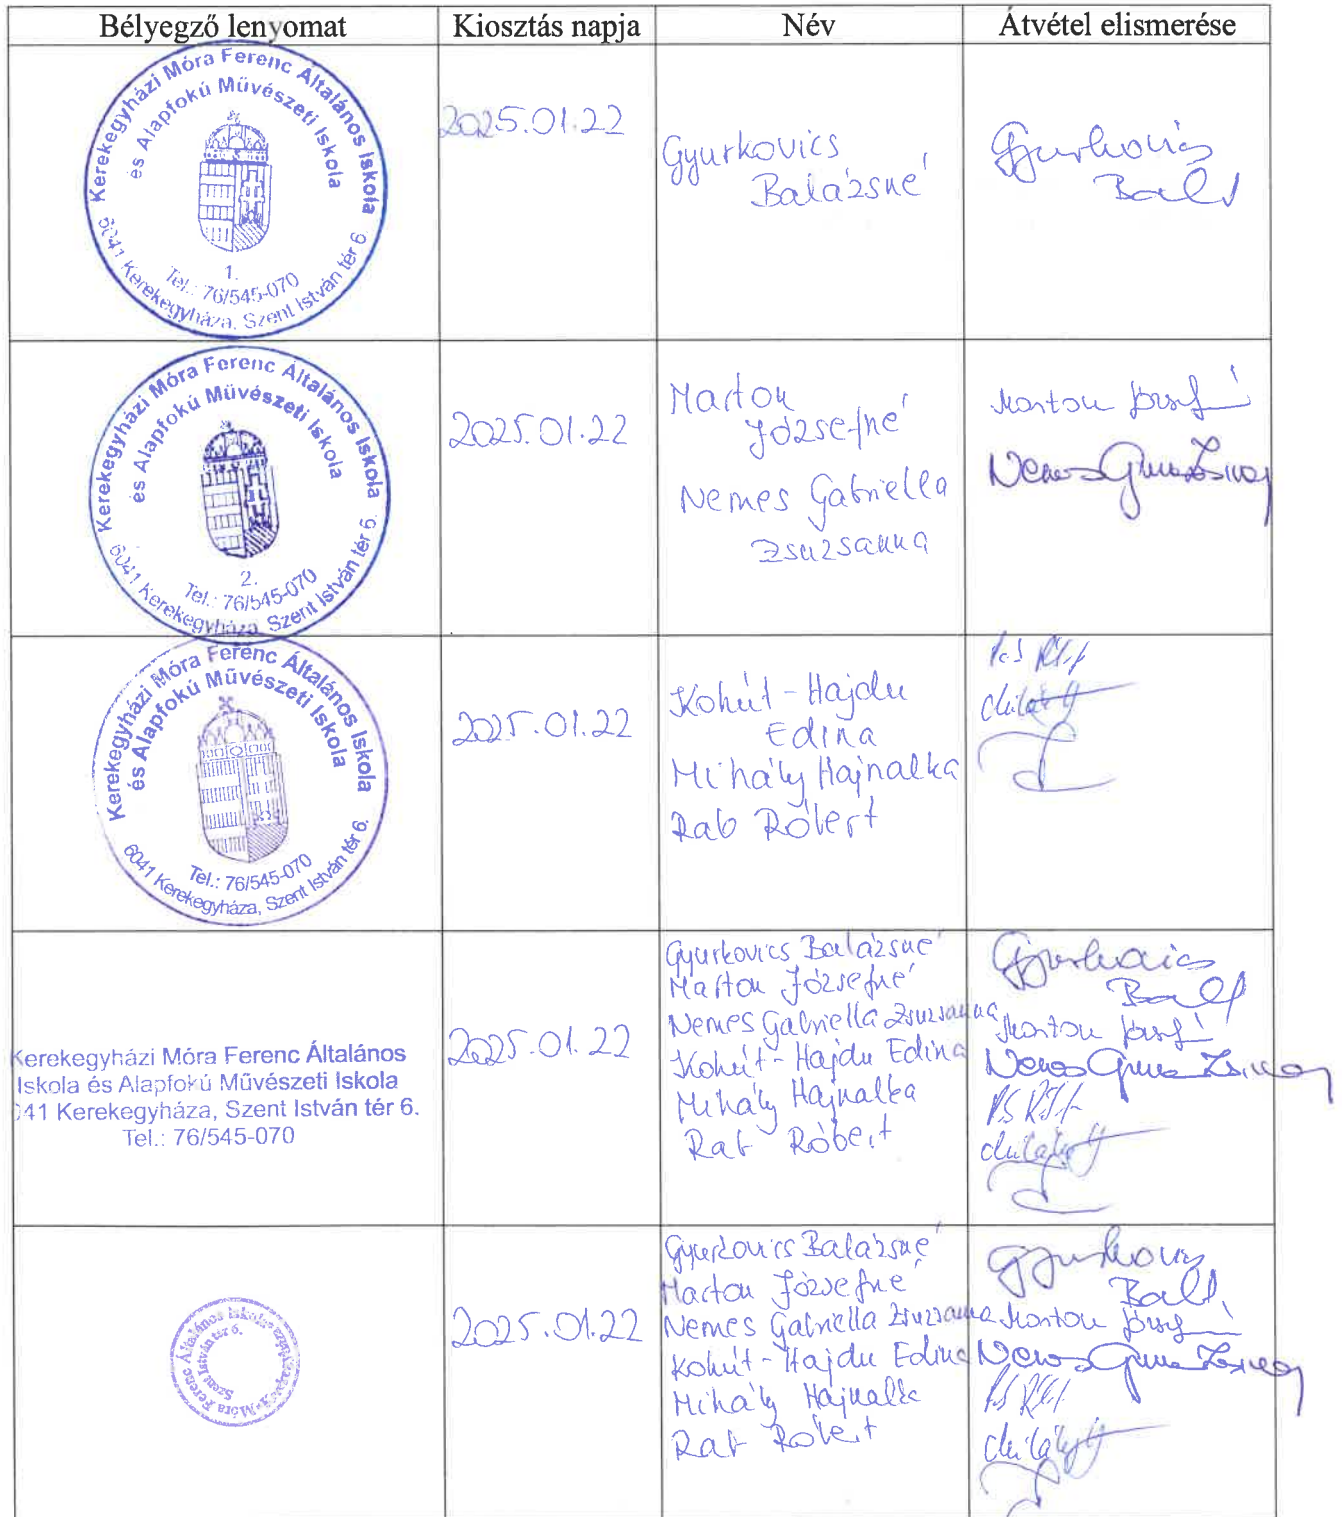 Bélyegző lenyomat
Kiosztás napja
Név
Átvétel elismerése
Kerekegyházi Móra Ferenc Általános Iskola
és Alapfokú Művészeti Iskola
1.
Tel.: 76/545-070
6041 Kerekegyháza, Szent István tér 6.
2025.01.22
Gyurkovics
Balázsné
Gyurkovics
Kerekegyházi Móra Ferenc Általános Iskola
és Alapfokú Művészeti Iskola
2.
Tel.: 76/545-070
6041 Kerekegyháza, Szent István tér 6.
2025.01.22
Marton
Józsefné
Nemes Gabriella
Zsuzsanna
Marton
Kerekegyházi Móra Ferenc Általános Iskola
és Alapfokú Művészeti Iskola
Tel.: 76/545-070
6041 Kerekegyháza, Szent István tér 6.
2025.01.22
Kohút-Hajdu
Edina
Mihály Hajnalka
Rab Róbert
Kerekegyházi Móra Ferenc Általános
Iskola és Alapfokú Művészeti Iskola
041 Kerekegyháza, Szent István tér 6.
Tel.: 76/545-070
2025.01.22
Gyurkovics Balázsné
Marton Józsefné
Nemes Gabriella Zsuzsanna
Kohút-Hajdu Edina
Mihály Hajnalka
Rab Róbert
Gyurkovics
Marton
Móra Ferenc Általános Iskola
Szent István tér 6.
2025.01.22
Gyurkovics Balázsné
Marton Józsefné
Nemes Gabriella Zsuzsanna
Kohút-Hajdu Edina
Mihály Hajnalka
Rab Róbert
Gyurkovics
Marton